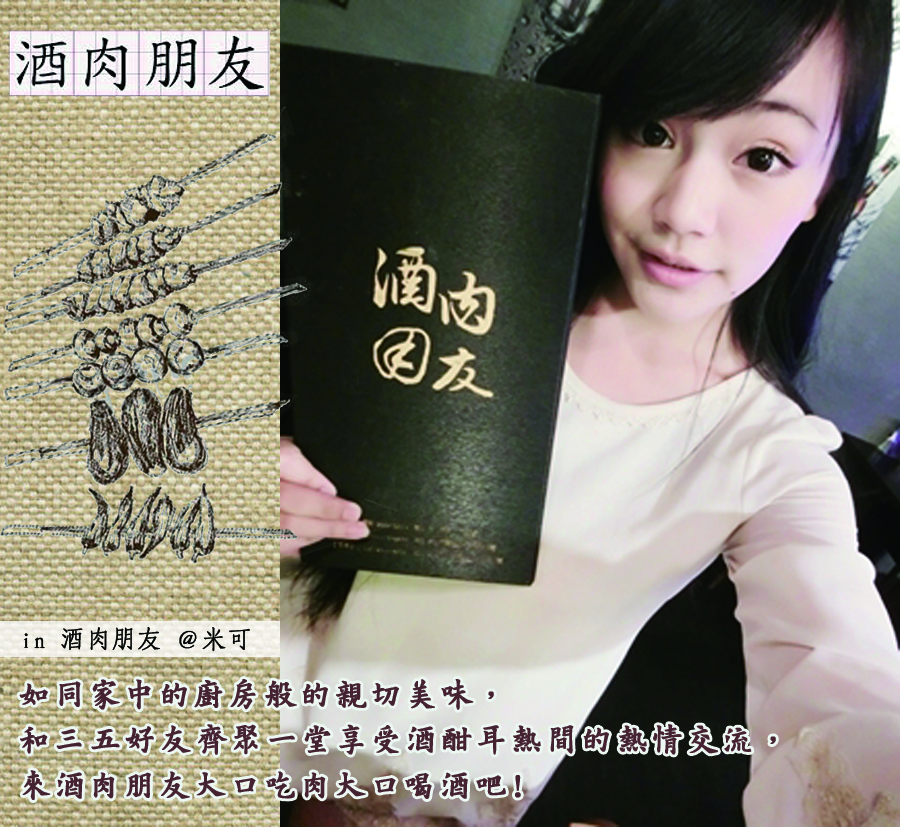 酒肉朋友
酒肉
朋友
in 酒肉朋友 @米可
如同家中的廚房般的親切美味，
和三五好友齊聚一堂享受酒酣耳熱間的熱情交流，
來酒肉朋友大口吃肉大口喝酒吧!